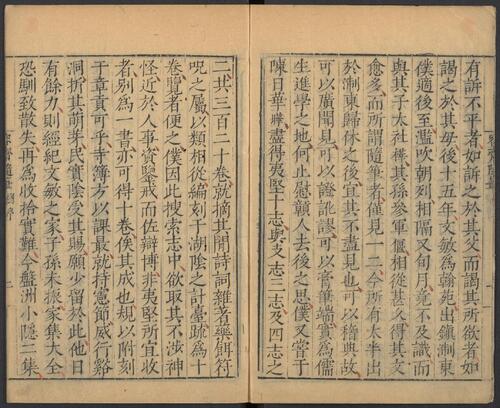 有訴不平者如訴於其父而謁其所欲者如
謁之於其母後十五年文敏為翰苑出鎮浙東
僕適後至濫吹朝列相隔又旬月竟不及識而
與其子太社樺其孫參軍偃相從甚久得其文
愈多而所謂隨筆者僅見一二今所有太半出
於浙東歸休之後宜其不盡見也可以稽典故
可以廣聞見可以證訛謬可以膏筆端實為儒
生進學之地何止慰贛人去後之思僕又嘗于
陳日華曄盡得夷堅十志與支志三志及四志之
二共三百二十卷就摘其間詩詞雜著藥餌符
呪之屬以類相從編刻于湖陰之計臺疏為十
卷覽者便之僕因此搜索志中欲取其不涉神
怪近於人事資鑒戒而佐辯博非夷堅所宜收
者別為一書亦可得十卷俟其成也規以附刻
于章貢可乎寺簿方以課最就持憲節威行谿
洞折其萌芽民實陰受其賜願少留於此他日
有餘力則經紀文敏之家子孫未振家集大全
恐馴致散失再為收拾實難今盤洲小隱二集